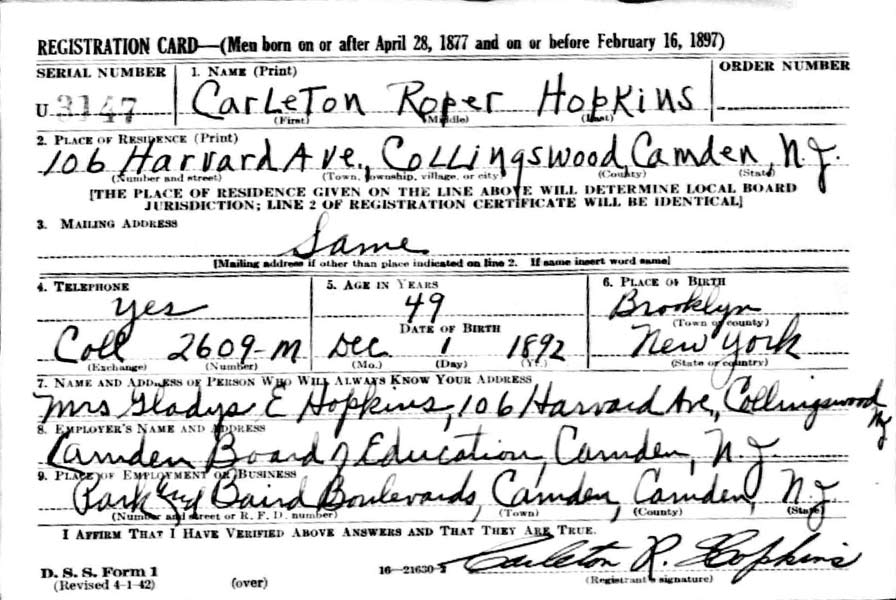 REGISTRATION CARD—(Men born on or after April 28, 1877 and on or before February 16, 1897)
SERIAL NUMBER 1. NAME (Print) ORDER NUMBER
U 3147 CarleTon Roper Hopkins
(First) (Middle) (Last)
2. PLACE OF RESIDENCE (Print)
106 Harvard Ave., Collingswood, Camden, N.J.
(Number and street) (Town, township, village, or city) (County) (State)
[THE PLACE OF RESIDENCE GIVEN ON THE LINE ABOVE WILL DETERMINE LOCAL BOARD
JURISDICTION; LINE 2 OF REGISTRATION CERTIFICATE WILL BE IDENTICAL]
3. MAILING ADDRESS
Same
[Mailing address if other than place indicated on line 2. If same insert word same]
4. TELEPHONE 5. AGE IN YEARS 6. PLACE OF BIRTH
Yes 49 Brooklyn
DATE OF BIRTH (Town or county)
Coll 2609-M Dec. 1 1892 New York
(Exchange) (Number) (Mo.) (Day) (Yr.) (State or country)
7. NAME AND ADDRESS OF PERSON WHO WILL ALWAYS KNOW YOUR ADDRESS
Mrs Gladys E Hopkins, 106 Harvard Ave, Collingswood NJ
8. EMPLOYER'S NAME AND ADDRESS
Camden Board of Education, Camden, N.J.
9. PLACE OF EMPLOYMENT OR BUSINESS
Park and Baird Boulevards, Camden, Camden, NJ
(Number and street or R. F. D. number) (Town) (County) (State)
I AFFIRM THAT I HAVE VERIFIED ABOVE ANSWERS AND THAT THEY ARE TRUE.
Carleton R. Hopkins
D. S. S. Form 1 16—21630-2
(Revised 4-1-42) (over) (Registrant's signature)